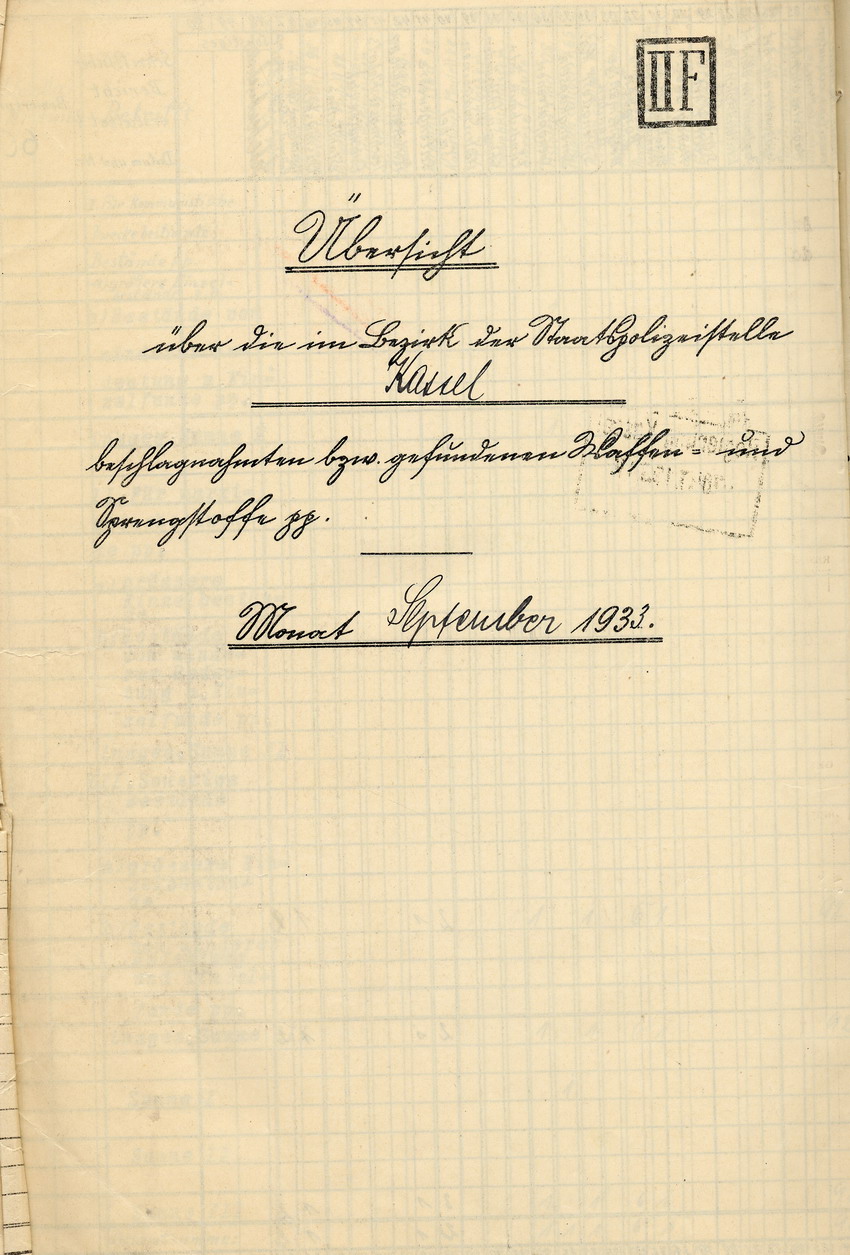 II F
Übersicht
über die im Bezirk der Staatspolizeistelle
Kassel
beschlagnahmten bzw. gefundenen Waffen- und
Sprengstoffe pp.
Monat September 1933.